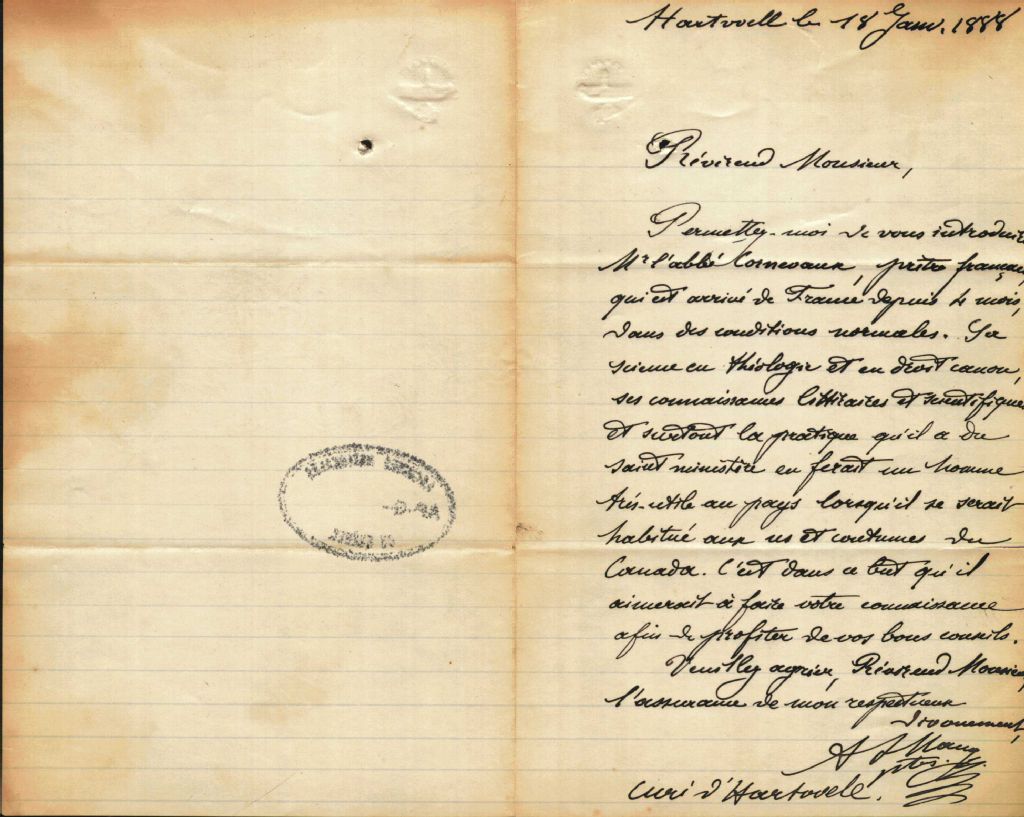 Hartwell le 18 Janv. 1888
Révérend Monsieur,
Permettez-moi de vous introduire
Mr l'abbé Corneaux, prêtre français,
qui est arrivé de France depuis 4 mois,
dans des conditions normales. Sa
science en théologie et en droit canon,
ses connaissances littéraires et scientifiques
et surtout la pratique qu'il a du
saint ministère en ferait un homme
très-utile au pays lorsqu'il se serait
habitué aux us et coutumes du
Canada. C'est dans ce but qu'il
aimerait à faire votre connaissance
afin de profiter de vos bons conseils.
Veuillez agréer, Révérend Monsieur,
l'assurance de mon respectueux
dévouement,
ptre.
curé d'Hartwell.